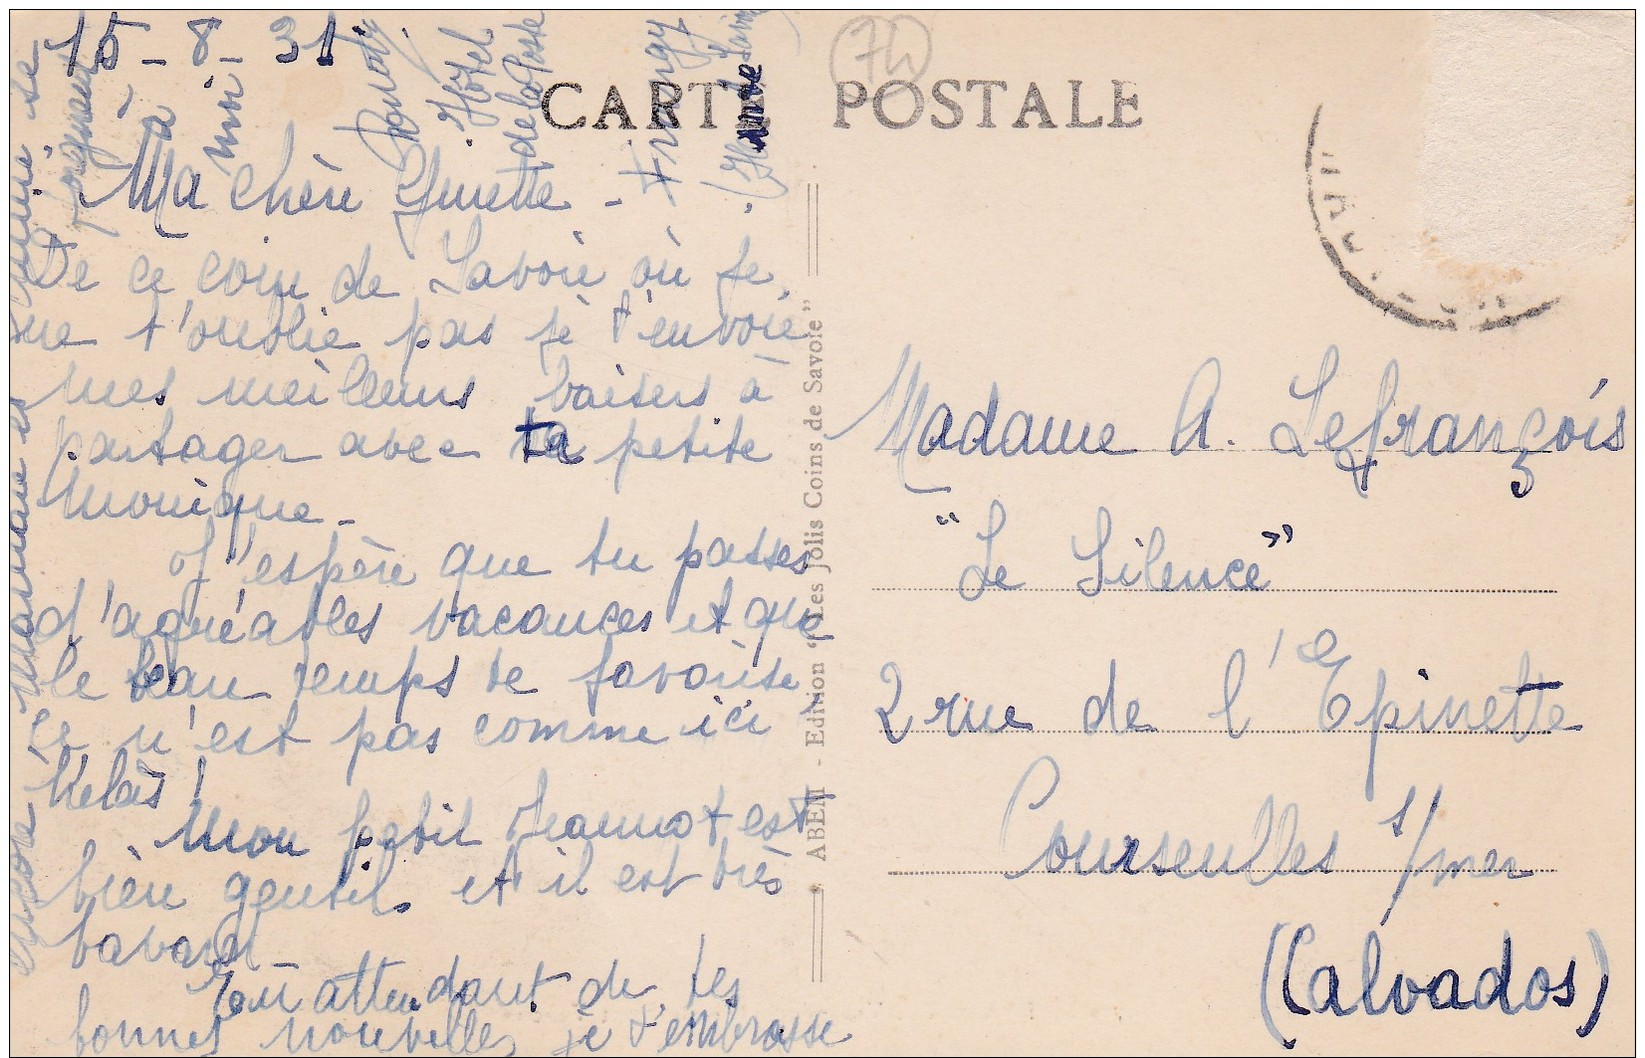 15-8-31
CARTE POSTALE
74
Hôtel
de la Poste
Frangy
(Haute Savoie
Ma chère Ginette -
De ce coin de Savoie où je
ne t'oublie pas je t'envoie
mes meilleurs baisers à
partager avec ta petite
Monique -
J'espère que tu passes
d'agréables vacances et que
le beau temps te favorise
Ce n'est pas comme ici
hélas !
Mon petit Jeannot est
bien gentil et il est très
bavard -
En attendant de tes
bonnes nouvelles je t'embrasse
encore
ABEM - Edition "Les Jolis Coins de Savoie"
Madame A. Lefrançois
"Le Silence"
2 rue de l'Epinette
Courseulles s/mer
(Calvados)